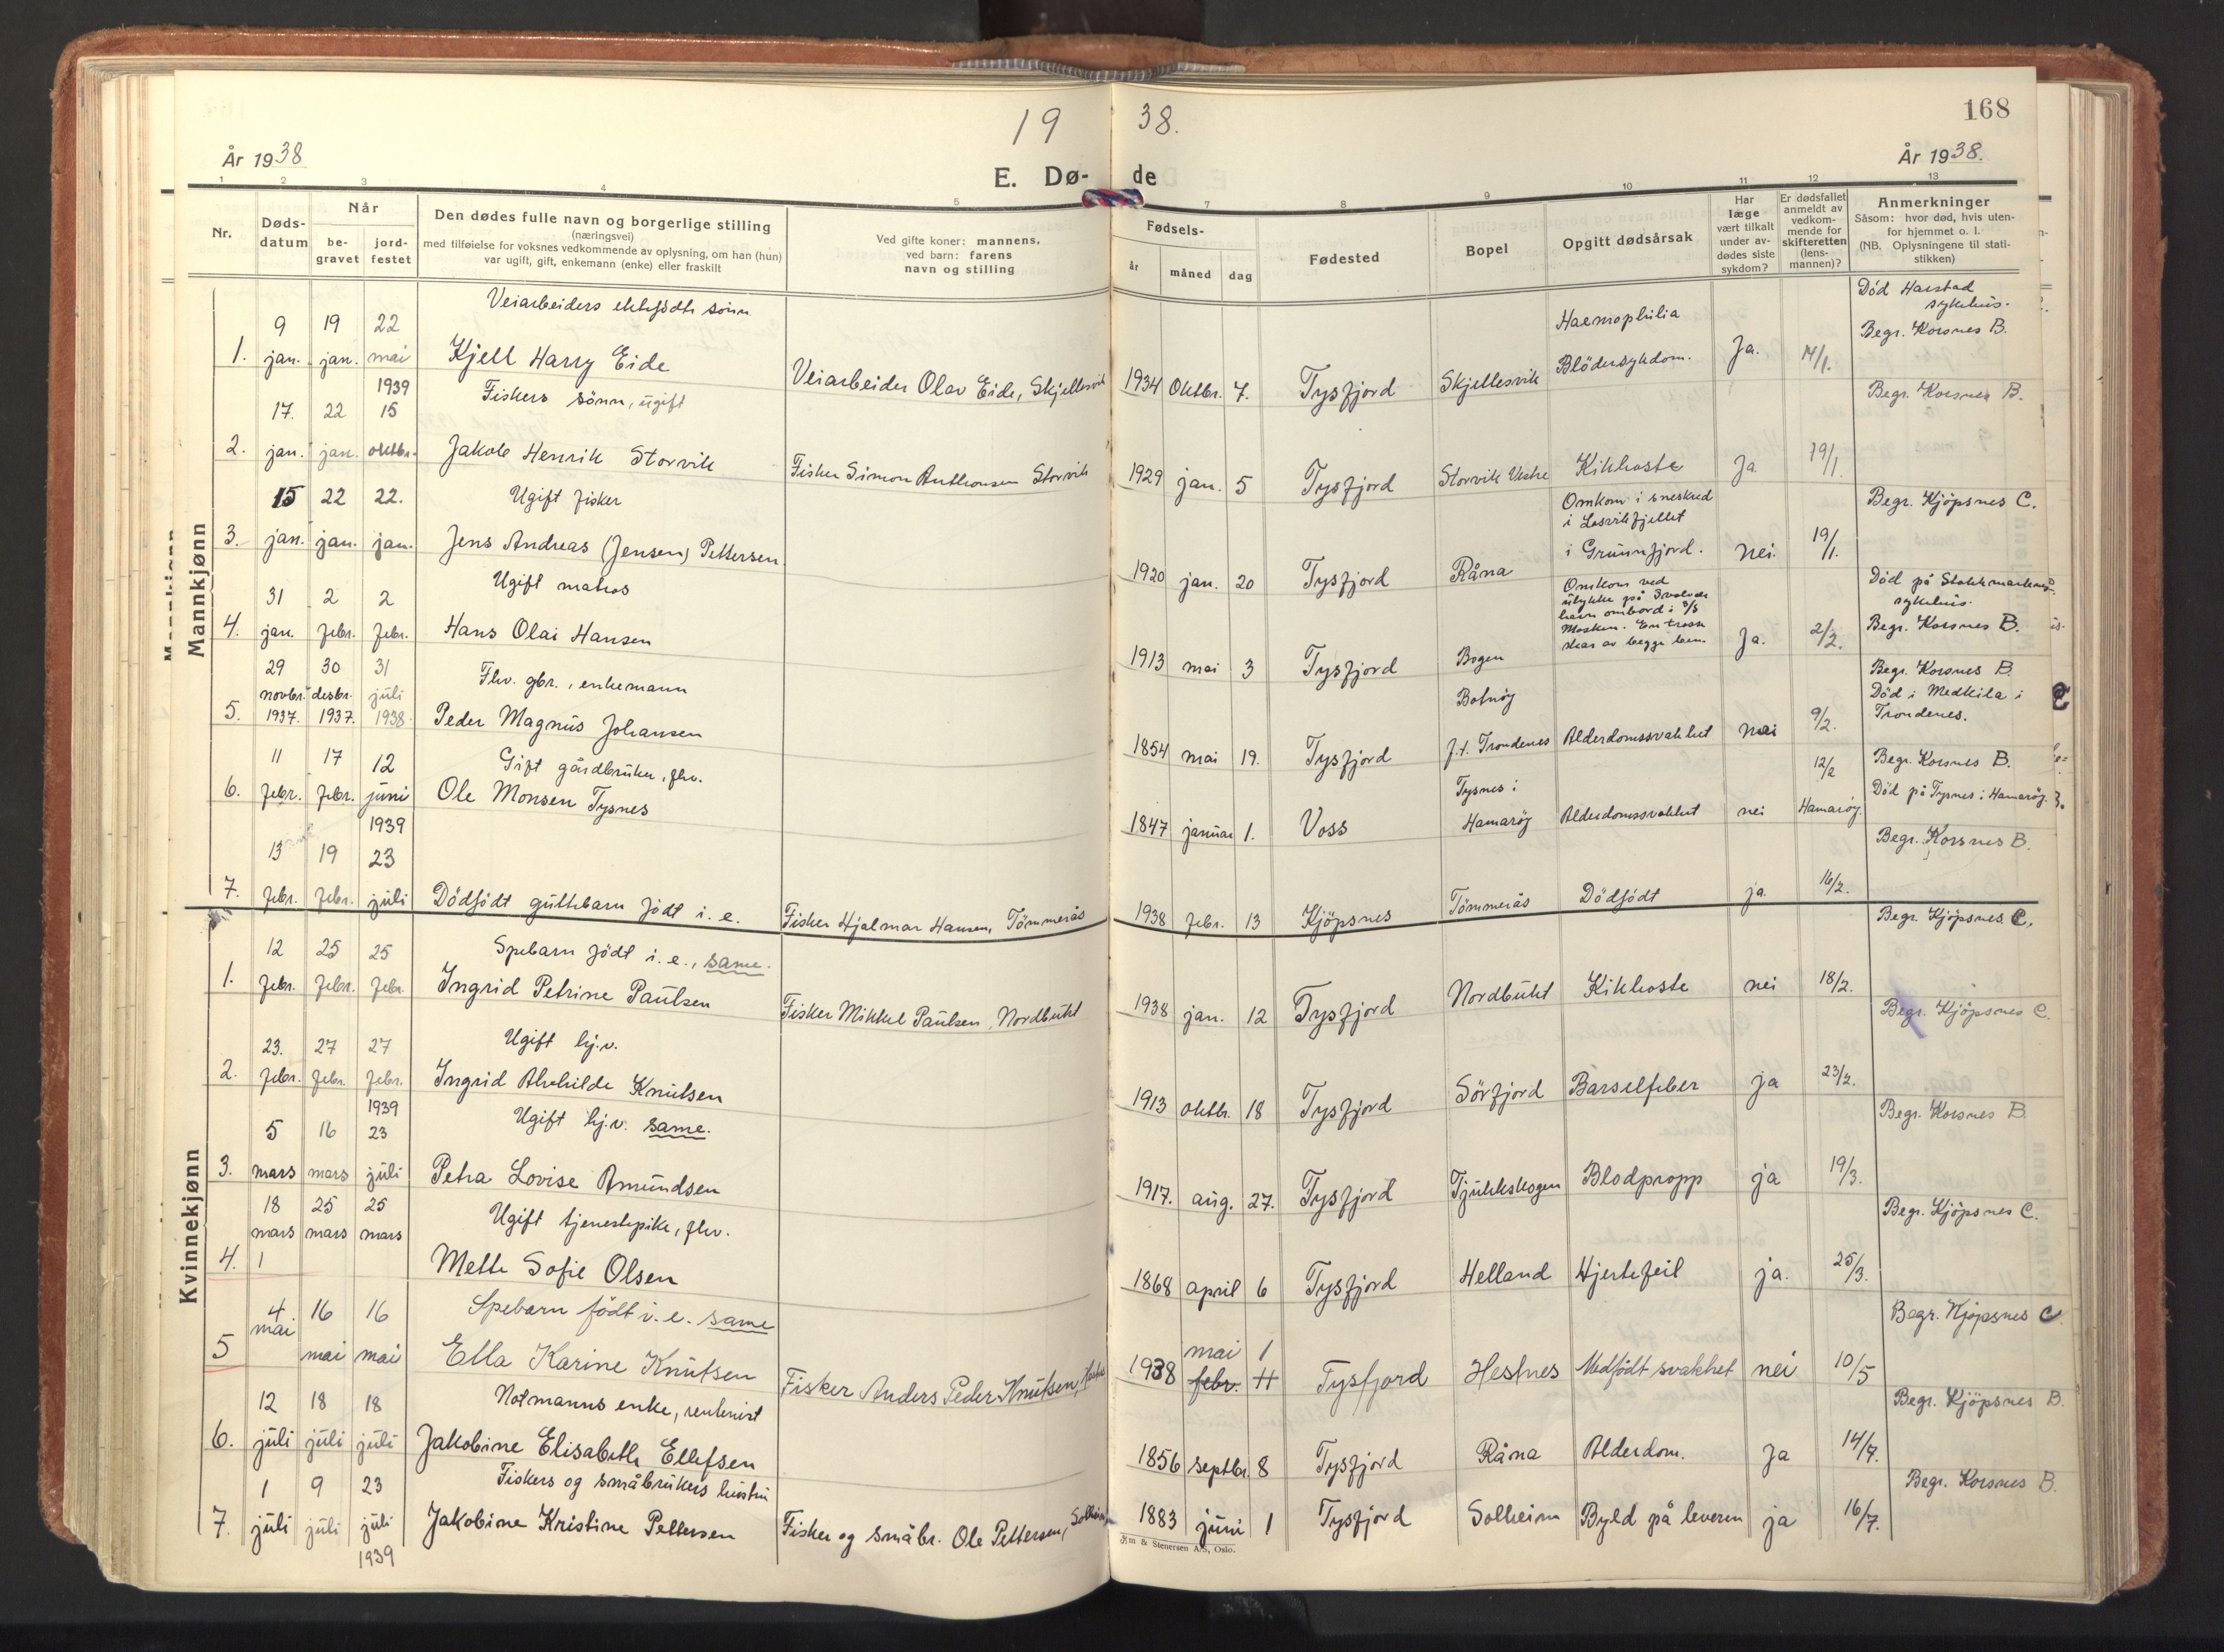 19 38.
168
År 1938
År 1938.
E. Dø- de
1 2 3 4 5 7 8 9 10 11 12 13
Nr.
Døds-
datum
Når
be-
gravet
jord-
festet
Den dødes fulle navn og borgerlige stilling
(næringsvei)
med tilføielse for voksnes vedkommende av oplysning, om han (hun)
var ugift, gift, enkemann (enke) eller fraskilt
Ved gifte koner: mannens,
ved barn: farens
navn og stilling
Fødsels-
år måned dag
Fødested
Bopel
Opgitt dødsårsak
Har
læge
vært tilkalt
under av-
dødes siste
sykdom?
Er dødsfallet
anmeldt av
vedkom-
mende for
skifteretten
(lens-
mannen)?
Anmerkninger
Såsom: hvor død, hvis uten-
for hjemmet o. l.
(NB. Oplysningene til stati-
stikken)
Mannkjønn
Veiarbeiders ektefødte sönn
9 19 22
1. jan. jan. mai Kjell Harry Eide
1939
Veiarbeider Olav Eide, Skjellesvik
1934 Oktbr. 7. Tysfjord Skjellesvik
Haemophilia
Blödersykdom.
Ja. 14/1.
Död Harstad
sykehus.
Begr. Korsnes B.
Fiskers sönn, ugift
17. 22 15
2. jan. jan. oktbr. Jakob Henrik Storvik
Fisker Simon Anthonsen Storvik
1929 jan. 5 Tysfjord Storvik Vestre Kikhoste Ja 19/1.
Begr. Korsnes B.
Ugift fisker
15 22 22.
3. jan. jan. jan. Jens Andreas (Jensen) Pettersen
1920 jan. 20 Tysfjord Råna
Omkom i sneskred
i Losvikfjellet
i Grunnfjord.
nei. 19/1.
Begr. Kjöpsnes C.
Ugift matros
31 2 2
4. jan. febr. febr. Hans Olai Hansen
1913 mai 3 Tysfjord Bogen
Omkom ved
ulykke på Svolvær
havn ombord i D/S
Mosken. En trosse
skar av begge ben.
Ja. 2/2.
Död på Stokmarknes
sykehus.
Begr. Korsnes B.
Fhv. gbr., enkemann
29 30 31
novbr. desbr. juli
5. 1937. 1937. 1938. Peder Magnus Johansen
1854 mai 19. Tysfjord
Botnög
f.t. Trondenes Alderdomssvakhet nei 9/2.
Begr. Korsnes B.
Död i Medkila i
Trondenes.
Gift gårdbruker, fhv.
11 17 12
6. febr. febr. juni Ole Monsen Tysnes
1939
1847 januar 1. Voss
Tysnes i
Hamaröy Alderdomssvakhet nei
12/2
Hamaröy.
Begr. Korsnes B.
Död på Tysnes i Hamaröy.
13 19 23
7. febr. febr. juli Dödfödt guttebarn födt i. e.
Fisker Hjalmar Hansen, Tömmerås
1938 febr. 13 Kjöpsnes Tömmerås Dödfödt ja. 16/2.
Begr. Korsnes B.
Kvinnekjønn
Spebarn födt i. e., same.
12 25 25
1. febr. febr. febr. Ingrid Petrine Paulsen
Fisker Mikkel Paulsen, Nordbukt
1938 jan. 12 Tysfjord Nordbukt Kikhoste nei 18/2.
Begr. Kjöpsnes C.
Ugift hj.v.
23. 27 27
2. febr. febr. febr. Ingrid Alvhilde Knutsen
1939
1913 oktbr. 18 Tysfjord Sörfjord Barselfeber ja 23/2.
Begr. Kjöpsnes C.
Ugift hj.v. same.
5 16 23
3. mars mars juli Petra Lovise Amundsen
1917. aug. 27. Tysfjord Tjukkskogen Blodpropp ja 19/3.
Begr. Korsnes B.
Ugift tjenestepike, fhv.
18 25 25
mars mars mars
4. 1 Mette Sofie Olsen
1868 april 6 Tysfjord Helland Hjertefeil ja. 25/3.
Begr. Kjöpsnes C.
Spebarn födt i. e. same
4 16 16
5 mai mai mai Ella Karine Knutsen
Fisker Anders Peder Knutsen, Hestnes
mai 1
1938 febr. 11 Tysfjord Hestnes Medfödt svakhet nei 10/5
Begr. Kjöpsnes C
Notmanns enke, rentenist
12 18 18
6. juli juli juli Jakobine Elisabeth Ellefsen
1856 septbr. 8 Tysfjord Råna Alderdom. Ja 14/7.
Begr. Kjöpsnes B.
Fiskers og småbrukers hustru
1 9 23
7. juli juli juli Jakobine Kristine Pettersen
1939
Fisker og småbr. Ole Pettersen, Solheim
1883 juni 1 Tysfjord Solheim Byld på leveren ja 16/7.
Begr. Korsnes B.
& Stenersen A/S, Oslo.